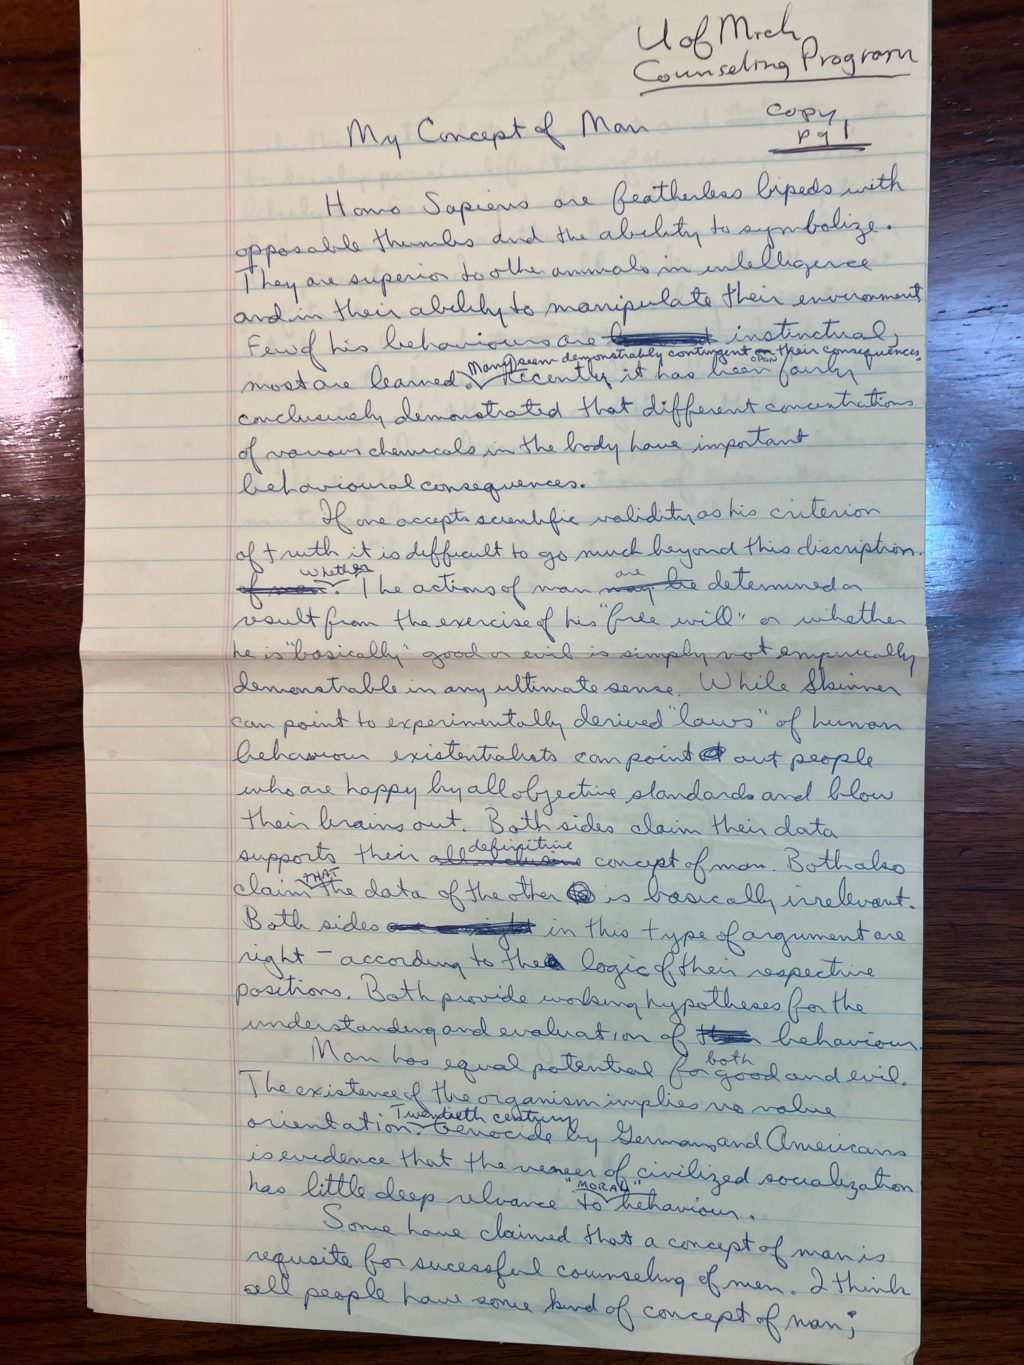 U of Mich
Counseling Program
copy
pg 1
My Concept of Man
Homo Sapiens are featherless bipeds with
opposable thumbs and the ability to symbolize.
They are superior to othe animals in intelligence
and in their ability to manipulate their environment
Few of his behaviours are instinctual,
Many seem demonstrably contingent upon their consequences.
most are learned. Recently it has been fairly
conclusively demonstrated that different concentrations
of various chemicals in the body have important
behavioural consequences.
If one accepts scientific validity as his criterion
of truth it is difficult to go much beyond this discription.
whether are
of man. The actions of man may be determined or
result from the exercise of his "free will" or whether
he is "basically" good or evil is simply not empirically
demonstrable in any ultimate sense. While Skinner
can point to experimentally derived "laws" of human
behaviour existentialists can point out people
who are happy by all objective standards and blow
their brains out. Both sides claim their data
definitive
supports their all inclusive concept of man. Both also
THAT
claim the data of the other is basically irrelevant.
Both sides are right in this type of argument are
right – according to the logic of their respective
positions. Both provide working hypotheses for the
understanding and evaluation of behaviour.
both
Man has equal potential for good and evil.
The existence of the organism implies no value
Twentieth century
orientation. Genocide by Germans and Americans
is evidence that the veneer of civilized socialization
"MORAL"
has little deep relvance to behaviour.
Some have claimed that a concept of man is
requsite for sucessful counseling of men. I think
all people have some kind of concept of man;